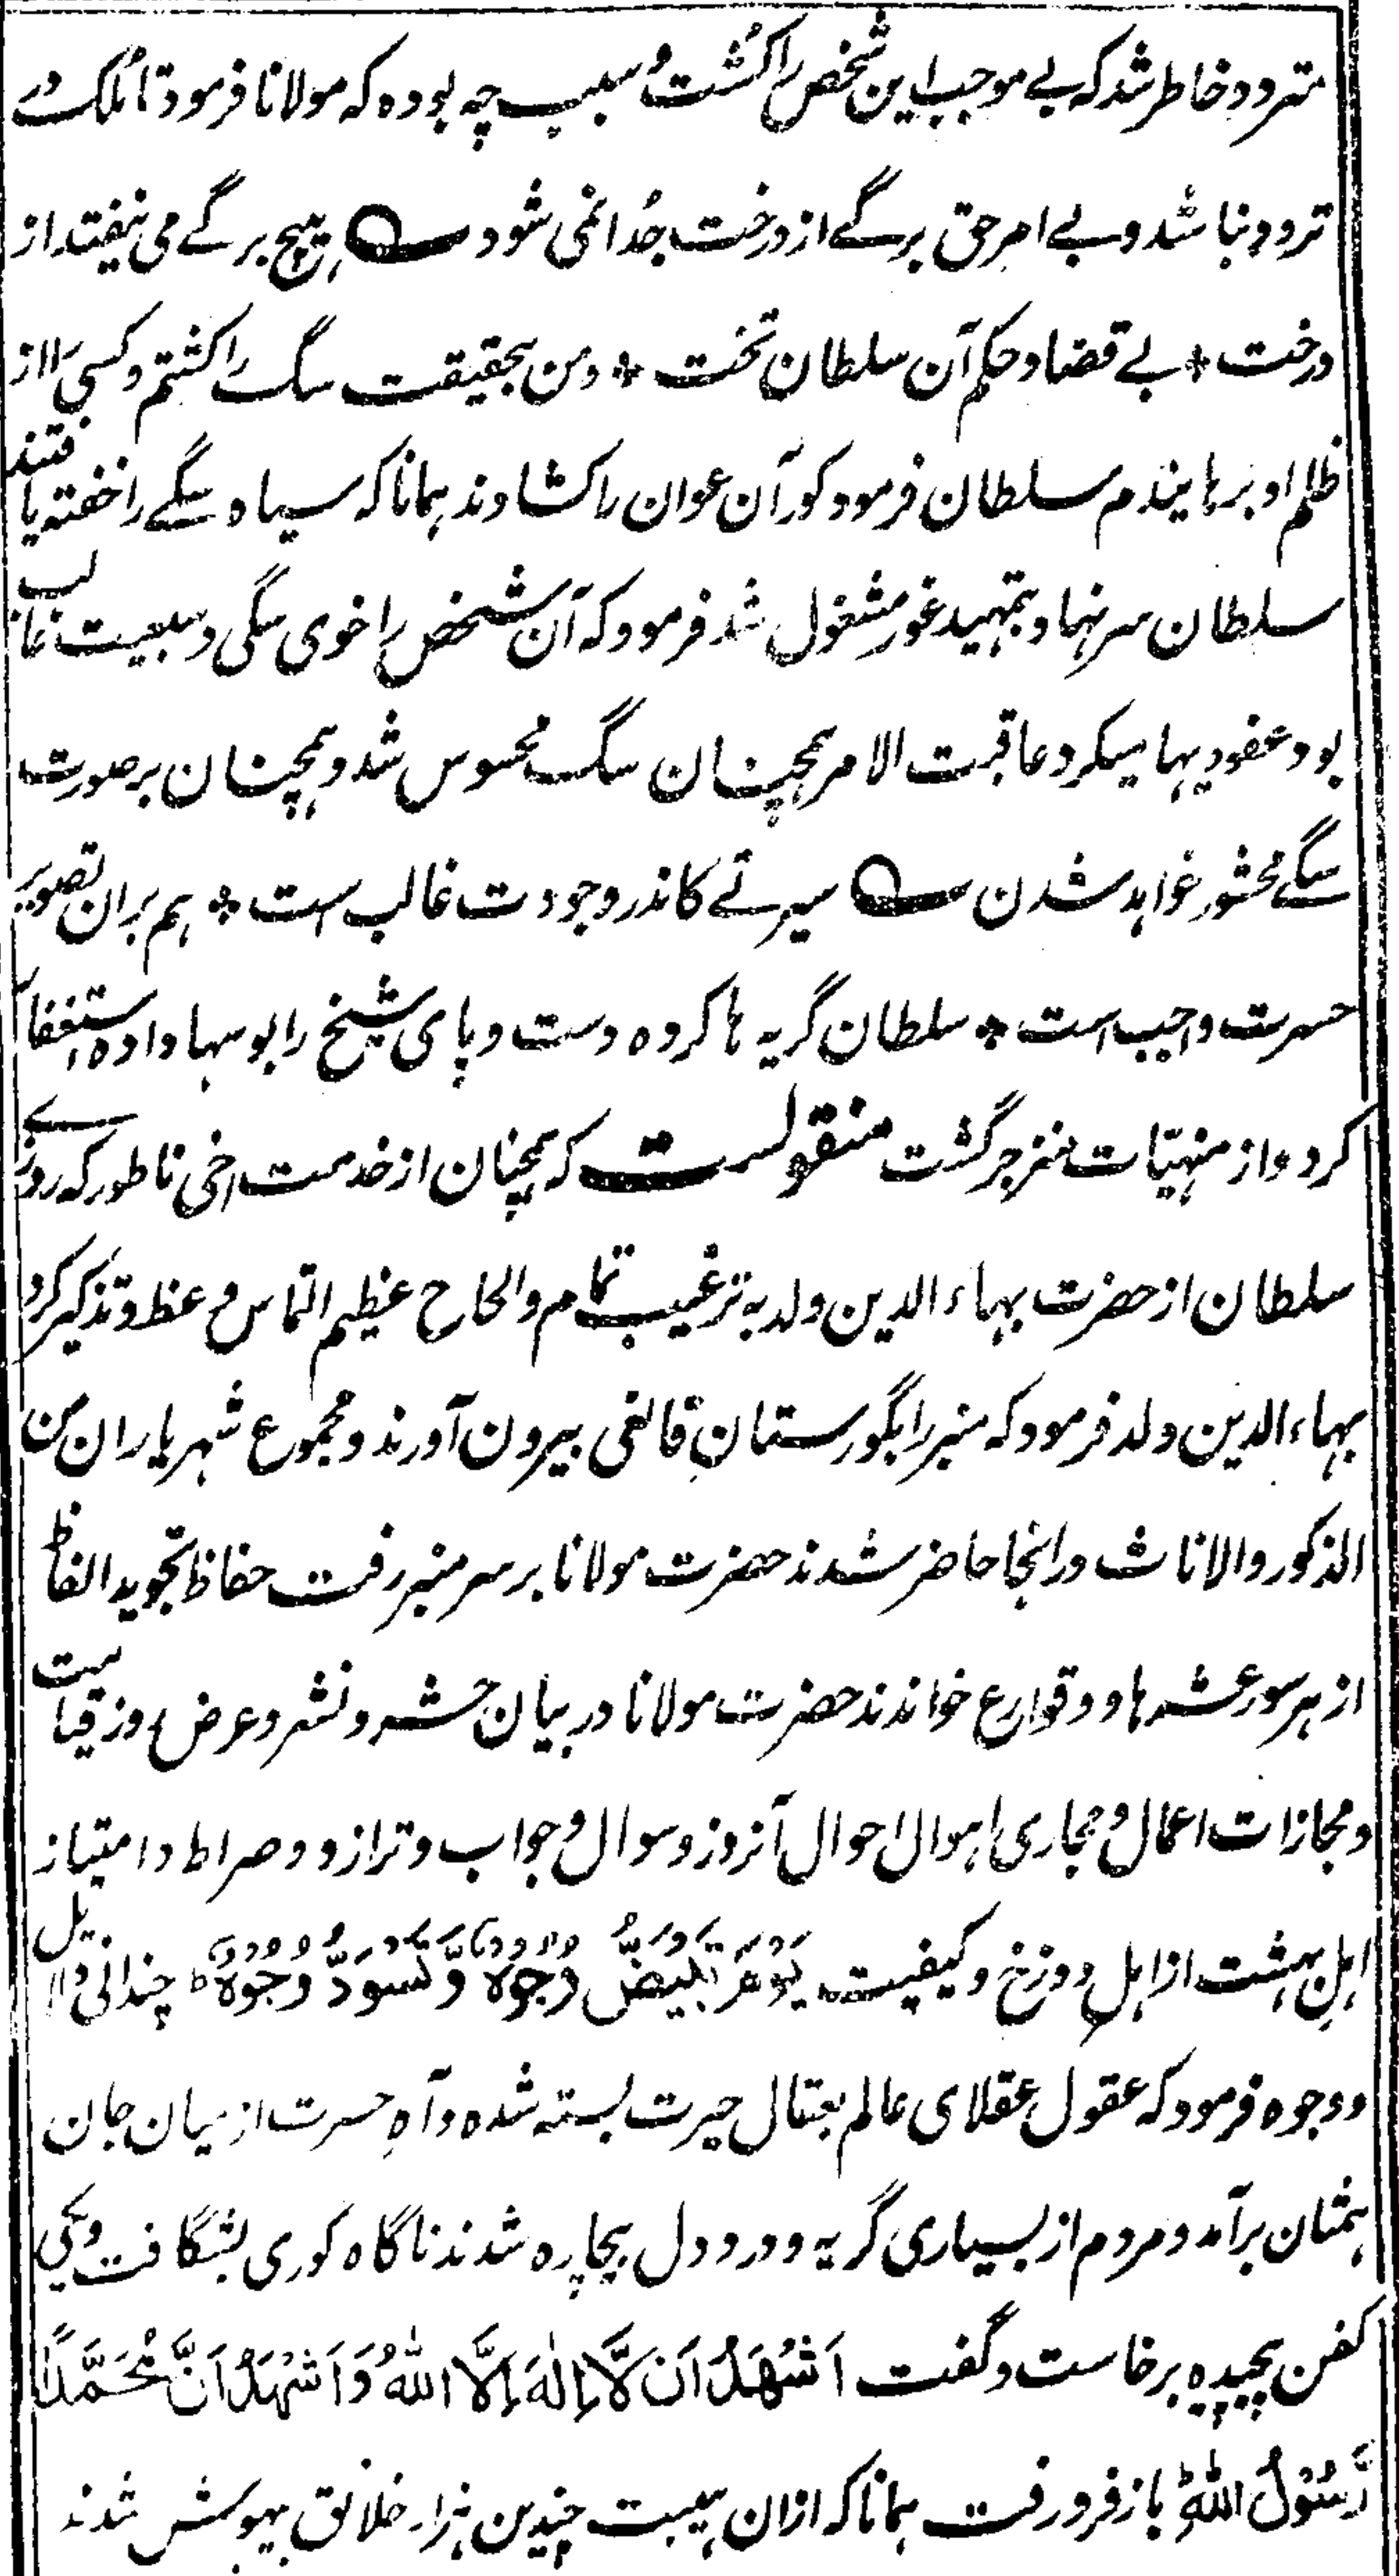 متردد خاطر شد که بے موجب این شخص را کشت و سبب چه بوده که مولانا فرمود تا ملک در
تردد نباشد و بے امر حق برگے از درخت جدا نمی شود ؎ هیچ برگے می نیفتد از
درخت * بے قضا و حکم آن سلطان تخت * و من بحقیقت سگ را کشتم و کسی را از
ظلم او برهانیدم سلطان فرمود گور آن عوان را کشادند همانا که سیاه سگے را خفته یافتند
سلطان سر نهاد و بتمهید غور مشغول شد فرمود که آن شخص را خوی سگی و سبعیت غالب
بود و عفودیها میکرد عاقبت الامر همچنان سگ محسوس شد و همچنان بر صورت
سگے محشور خواهد شدن ؎ سیرتے کاندر وجودت غالب است * هم بران تصویر
حسرت واجب است * سلطان گریه ها کرده دست و پای شیخ را بوسها داده استغفار
کرد و از منهیات منزجر گشت منقولست که همچنان از خدمت اخی ناطور که روزے
سلطان از حضرت بهاء الدین ولد به ترغیب تمام و الحاح عظیم التماس وعظ و تذکیر کرد
بهاء الدین ولد فرمود که منبر را بگورستان قالغی بیرون آورند و مجموع شهر یاران من
الذکور والاناث در انجا حاضر شدند حضرت مولانا بر سر منبر رفت حفاظ تجوید الفاظ
از هر سور عشرها و وقوارع خواندند حضرت مولانا در بیان حشر و نشر و عرض روز قیامت
و مجازات اعمال و مجاری اهوال احوال آنروز و سوال و جواب و ترازو و صراط و امتیاز
اهل بهشت از اهل دوزخ و کیفیت یَوْمَ تَبْیَضُّ وُجُوْهٌ وَّ تَسْوَدُّ وُجُوْهٌ ط چندانی دلایل
و وجوه فرمود که عقول عقلای عالم بعقال حیرت بسته شده و آهِ حسرت از میان جان
همشان برآمد و مردم از بسیاری گریه و درد دل بیچاره شدند ناگاه گوری بشگافت و یکی
کفن پیچیده برخاست و گفت اَشْهَدُ اَنْ لَّا اِلٰهَ اِلَّا اللهُ وَ اَشْهَدُ اَنَّ مُحَمَّدًا
رَّسُوْلُ اللهِ باز فرو رفت همانا که ازان هیبت چندین هزار خلائق بیهوش شدند